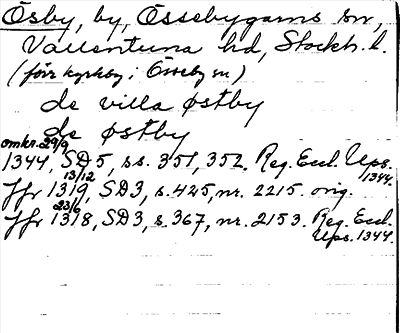 Ösby, by, Össebygarns sn,
Vallentuna hd, Stockh. l.
(förr kyrkby i Össeby sn)
de villa østby
de østby
omkr. 29/9
1344, SD5, ss. 351, 352. Reg. Eccl. Ups. 1344.
13/12
Jfr 1319, SD3, s. 425, nr. 2215. orig.
23/6
Jfr 1318, SD3, s. 367, nr. 2153. Reg. Eccl.
Ups. 1344.